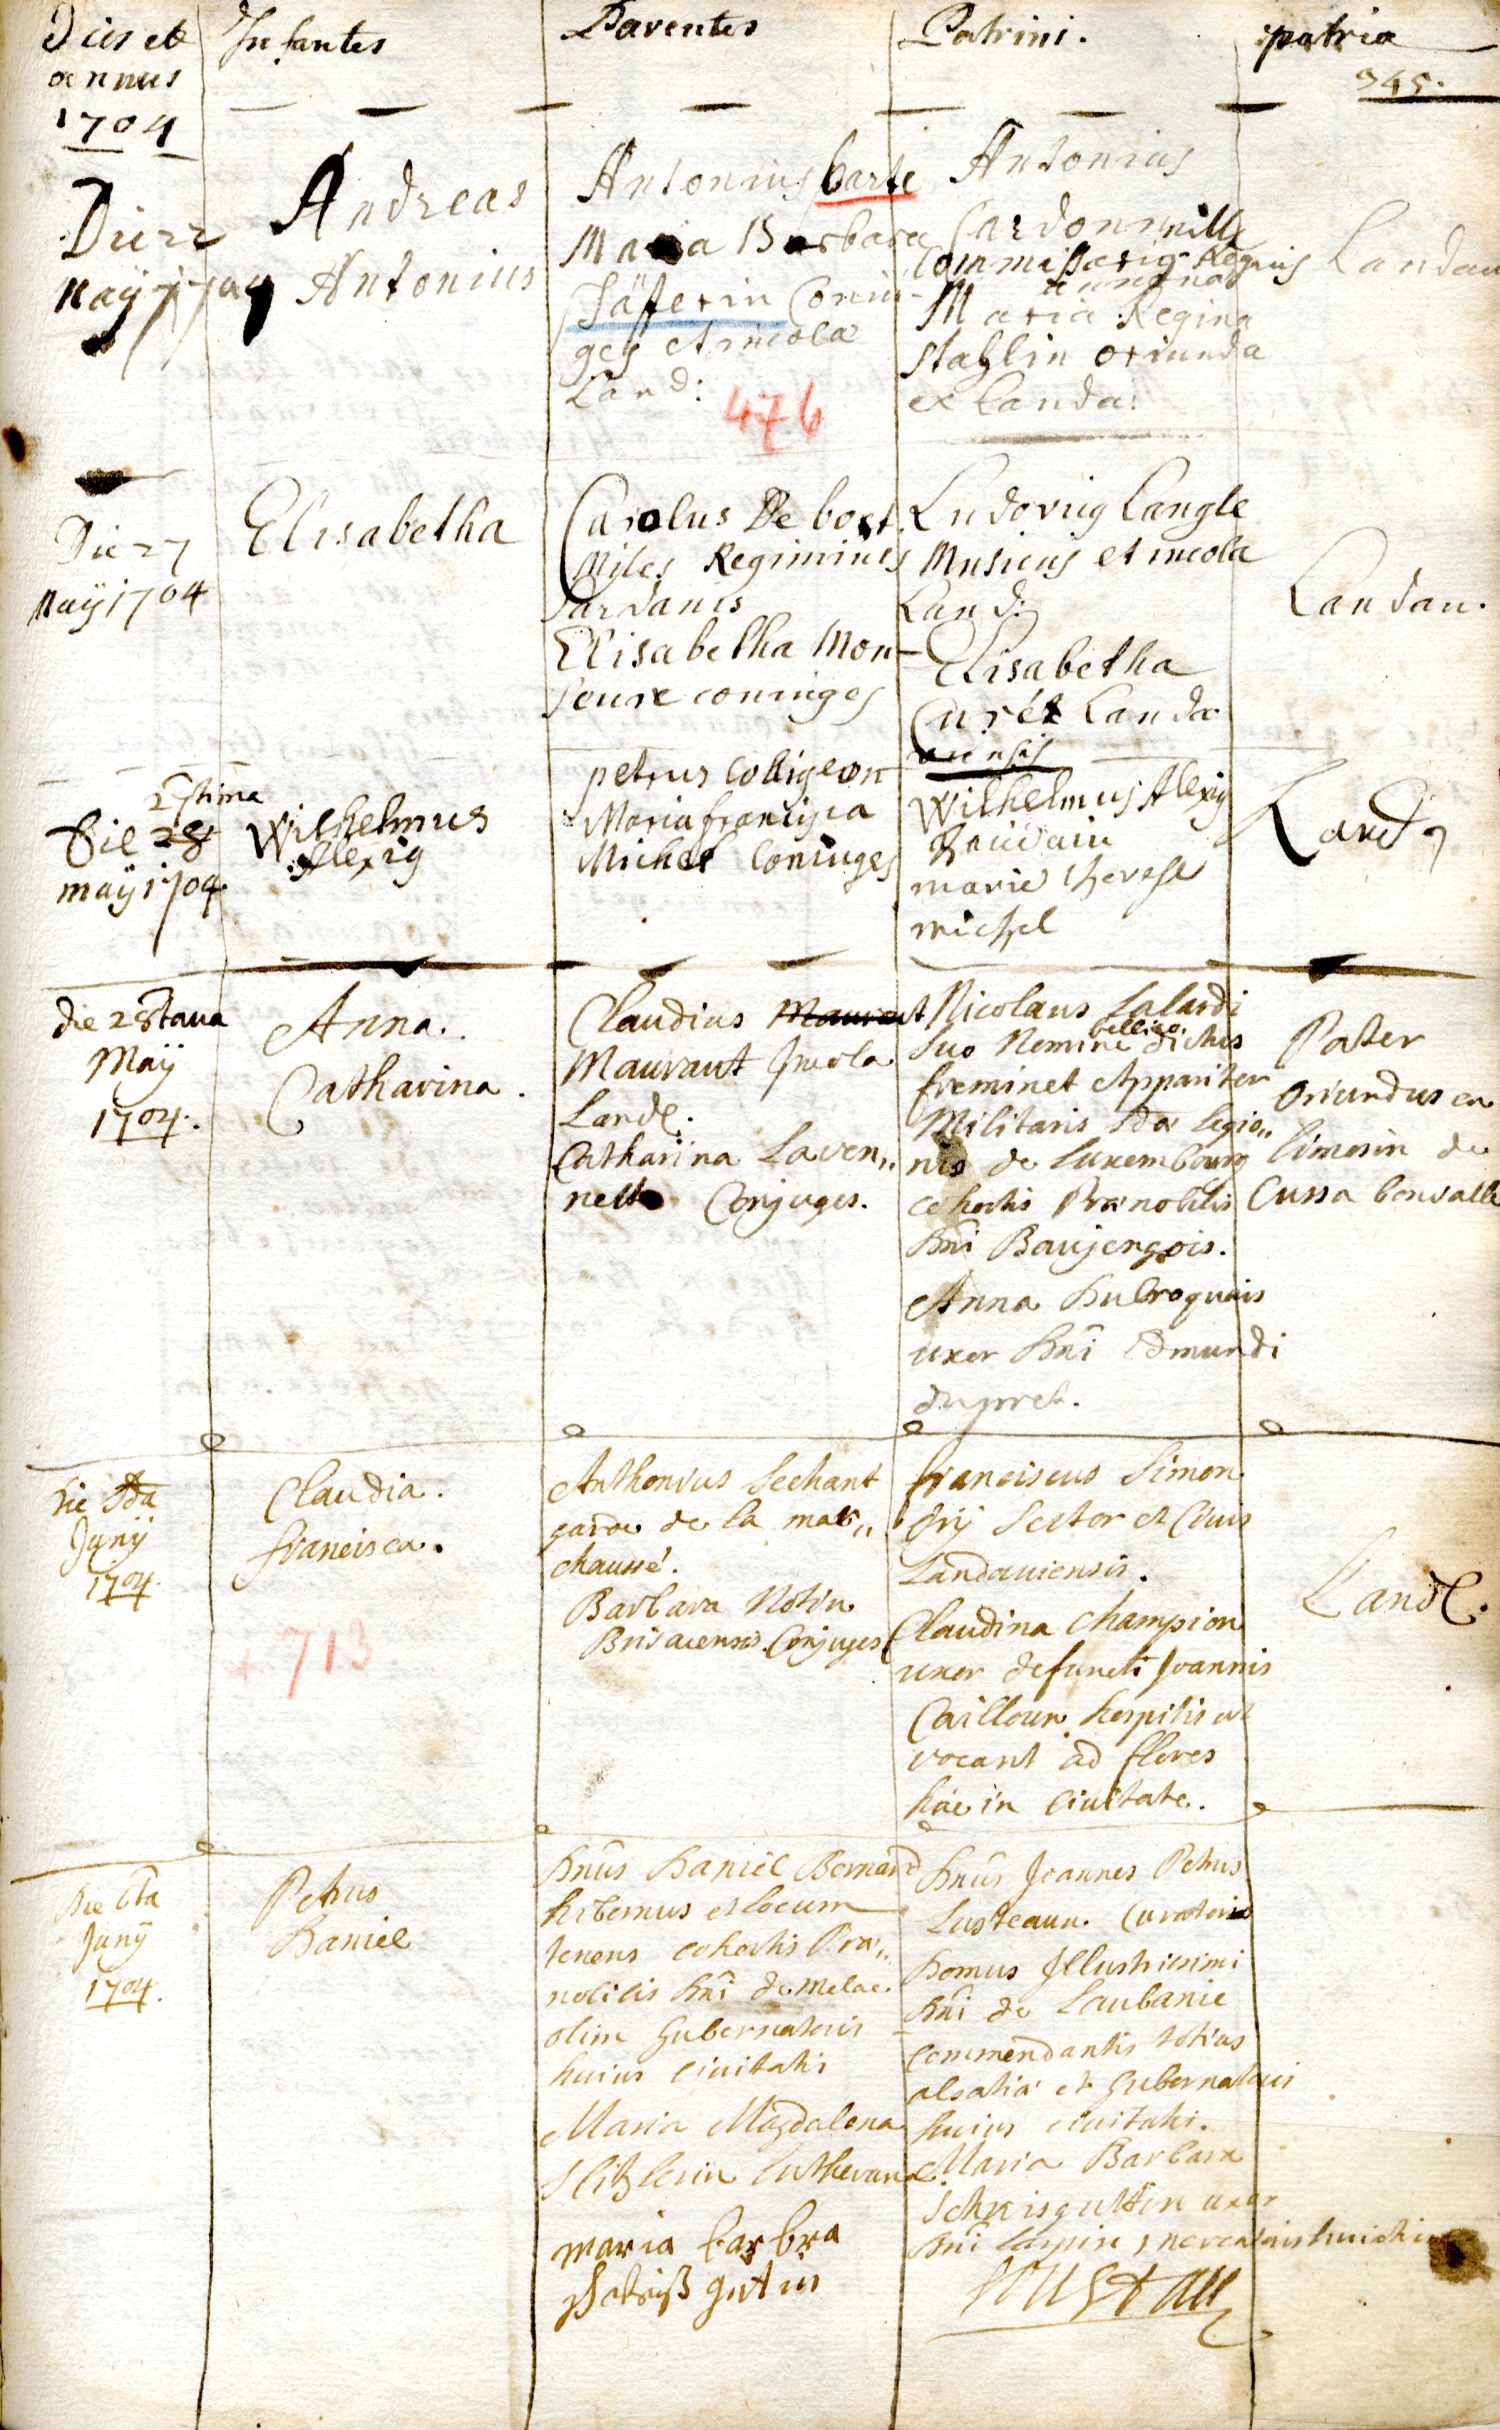 Dies et
annus
1704
Infantes
Parentes
Patrini.
patria
345.
Die 22
Maÿ 1704
Andreas
Antonius
Antonius barte
Maria Barbara
Säfferin Coniu-
ges et incolæ
Land:
476
Antonius
Cardonville
Commissarig Regius
Maria Regina
Stahlin oriunda
ex Landa:
Landau
Die 27
Maÿ 1704
Elisabetha
Carolus De bort
Miles Regiminis
Sardanis
Elisabetha Mon-
seure coniuges
Ludovig Langle
Musicus et incola
Land:
Elisabetha
Curét Landa
viensis
Landau.
27tima
Die 28
maÿ 1704
Wilhelmus
Alexig
petrus Colligeon
Maria francisca
Michel Coniuges
Wilhelmus Alexig
marie therese
michel
Land
die 28tava
Maÿ
1704.
Anna.
Catharina.
Claudius Maurant
Maurant Incola
Land.
Catharina Laven,,
nette Conjuges.
Nicolaus Lalardi
suo Nomine bellico dictus
freminet Appariter
Militaris 2dæ legio,,
nis de Luxembourg
cohortis Prænobilis
Dni Baujengois.
Anna Dubroquais
uxor Dni Edmundi
dupret.
Pater
Oriundus en
limosin de
Cussa bonvalle
die 2da
Junÿ
1704.
Claudia.
francisca.
+ 713
Anthonius Lechant
garde de la mar,,
chaussé.
Barbara Notin
Brisacensis Conjuges
franciscus Simon
Sector et Civis
Landaviensis.
Claudina Champion
uxor defuncti Joannis
Cailloux hospitis ut
vocant ad flores
hac in Civitate.
Land.
Die 6ta
Junÿ
1704.
Petrus
Daniel
Dnus Daniel Bernard
hibernus et locum
tenens cohortis Præ,,
nobilis Dni de Melac
olim Gubernatoris
huius civitatis
Maria Magdalena
Hitzlerin Lutherana
maria barbra
schweiß gut in
Dnus Joannes Petrus
Lusteaun. Curatoris
Domus Illustrissimi
Dni de Laubanie
commendantis totius
alsatiæ et Gubernatoris
huius civitatis.
Maria Barbara
Schweisguttin uxor
Dni Caspin mercatoris huiatis
loustau